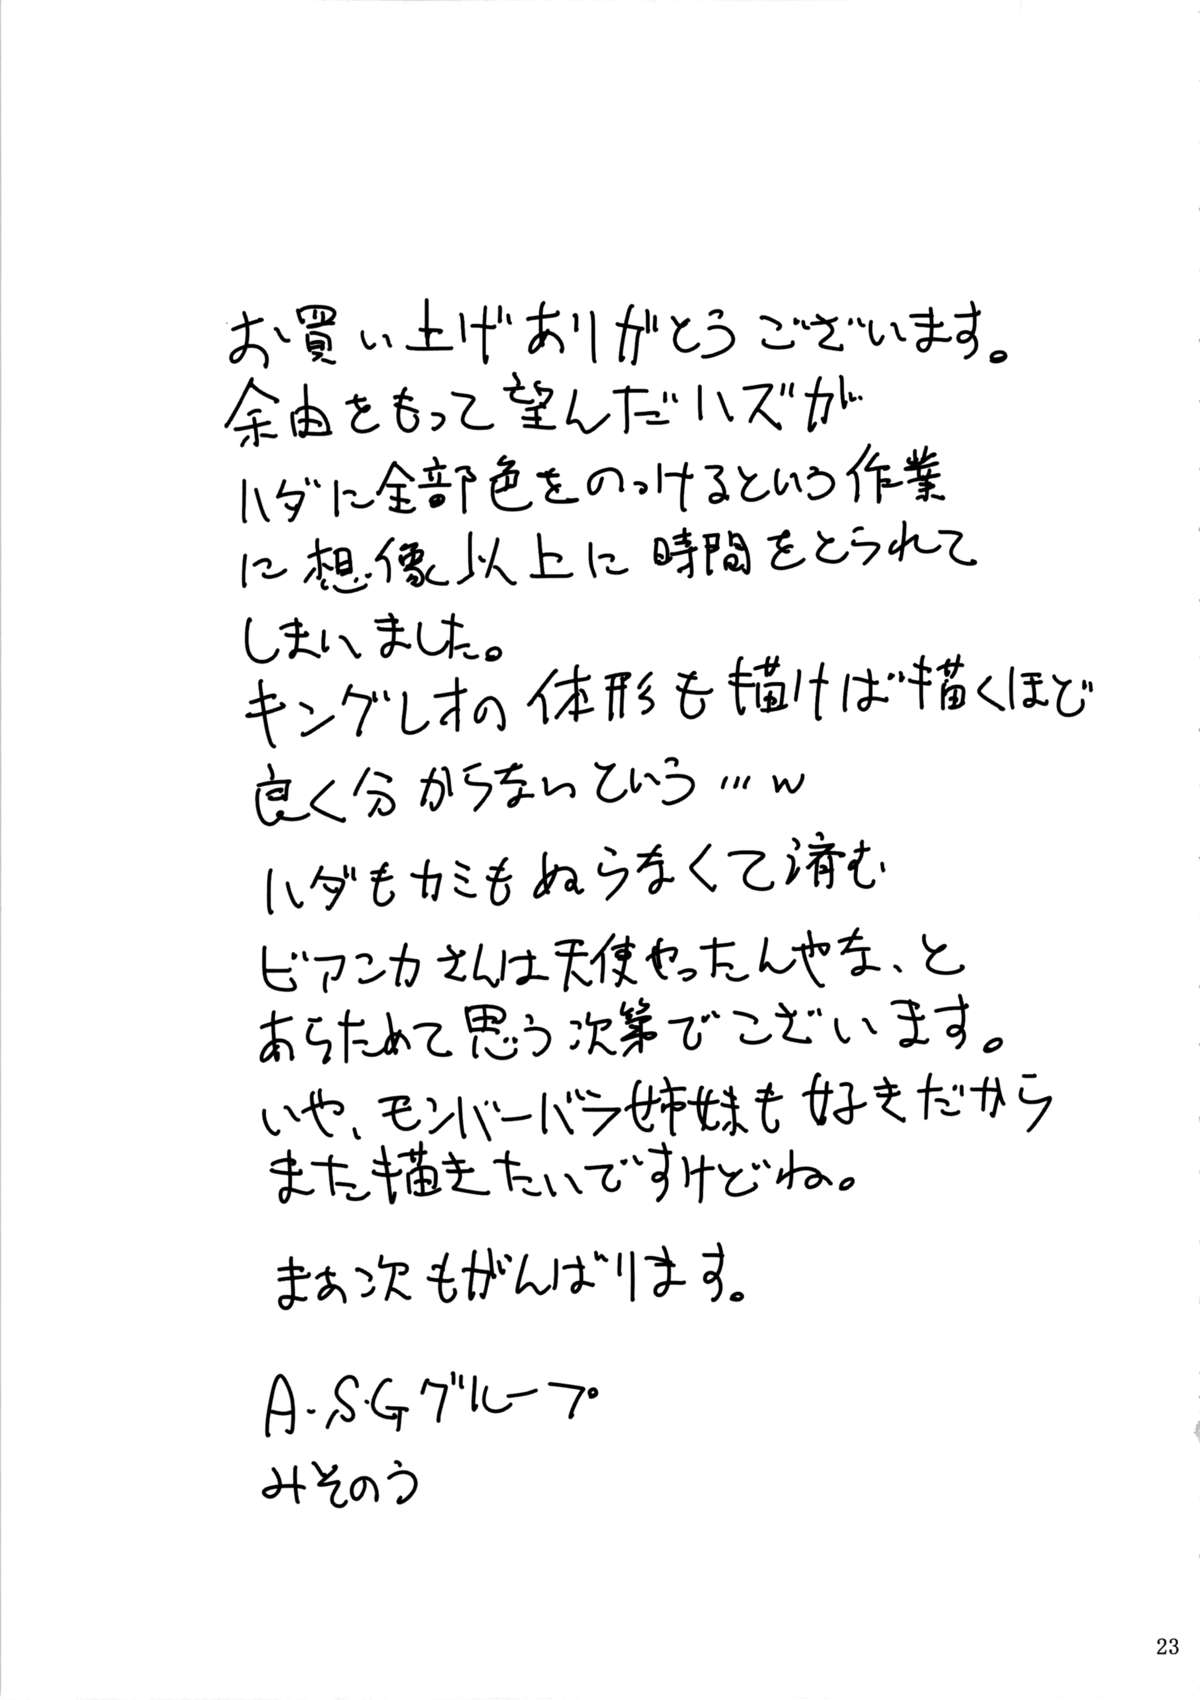 お買い上げありがとうございます。
余由をもって望んだハズが
ハダに全部色をのっけるという作業
に想像以上に時間をとられて
しまいました。
キングレオの体形も描けば描くほど
良く分からないという…w
ハダもカミもぬらなくて済む
ビアンカさんは天使やったんやな、と
あらためて思う次第でございます。
いや、モンバーバラ姉妹も好きだから
また描きたいですけどね。
まぁ次もがんばります。
A・S・Gグループ
みそのう
23